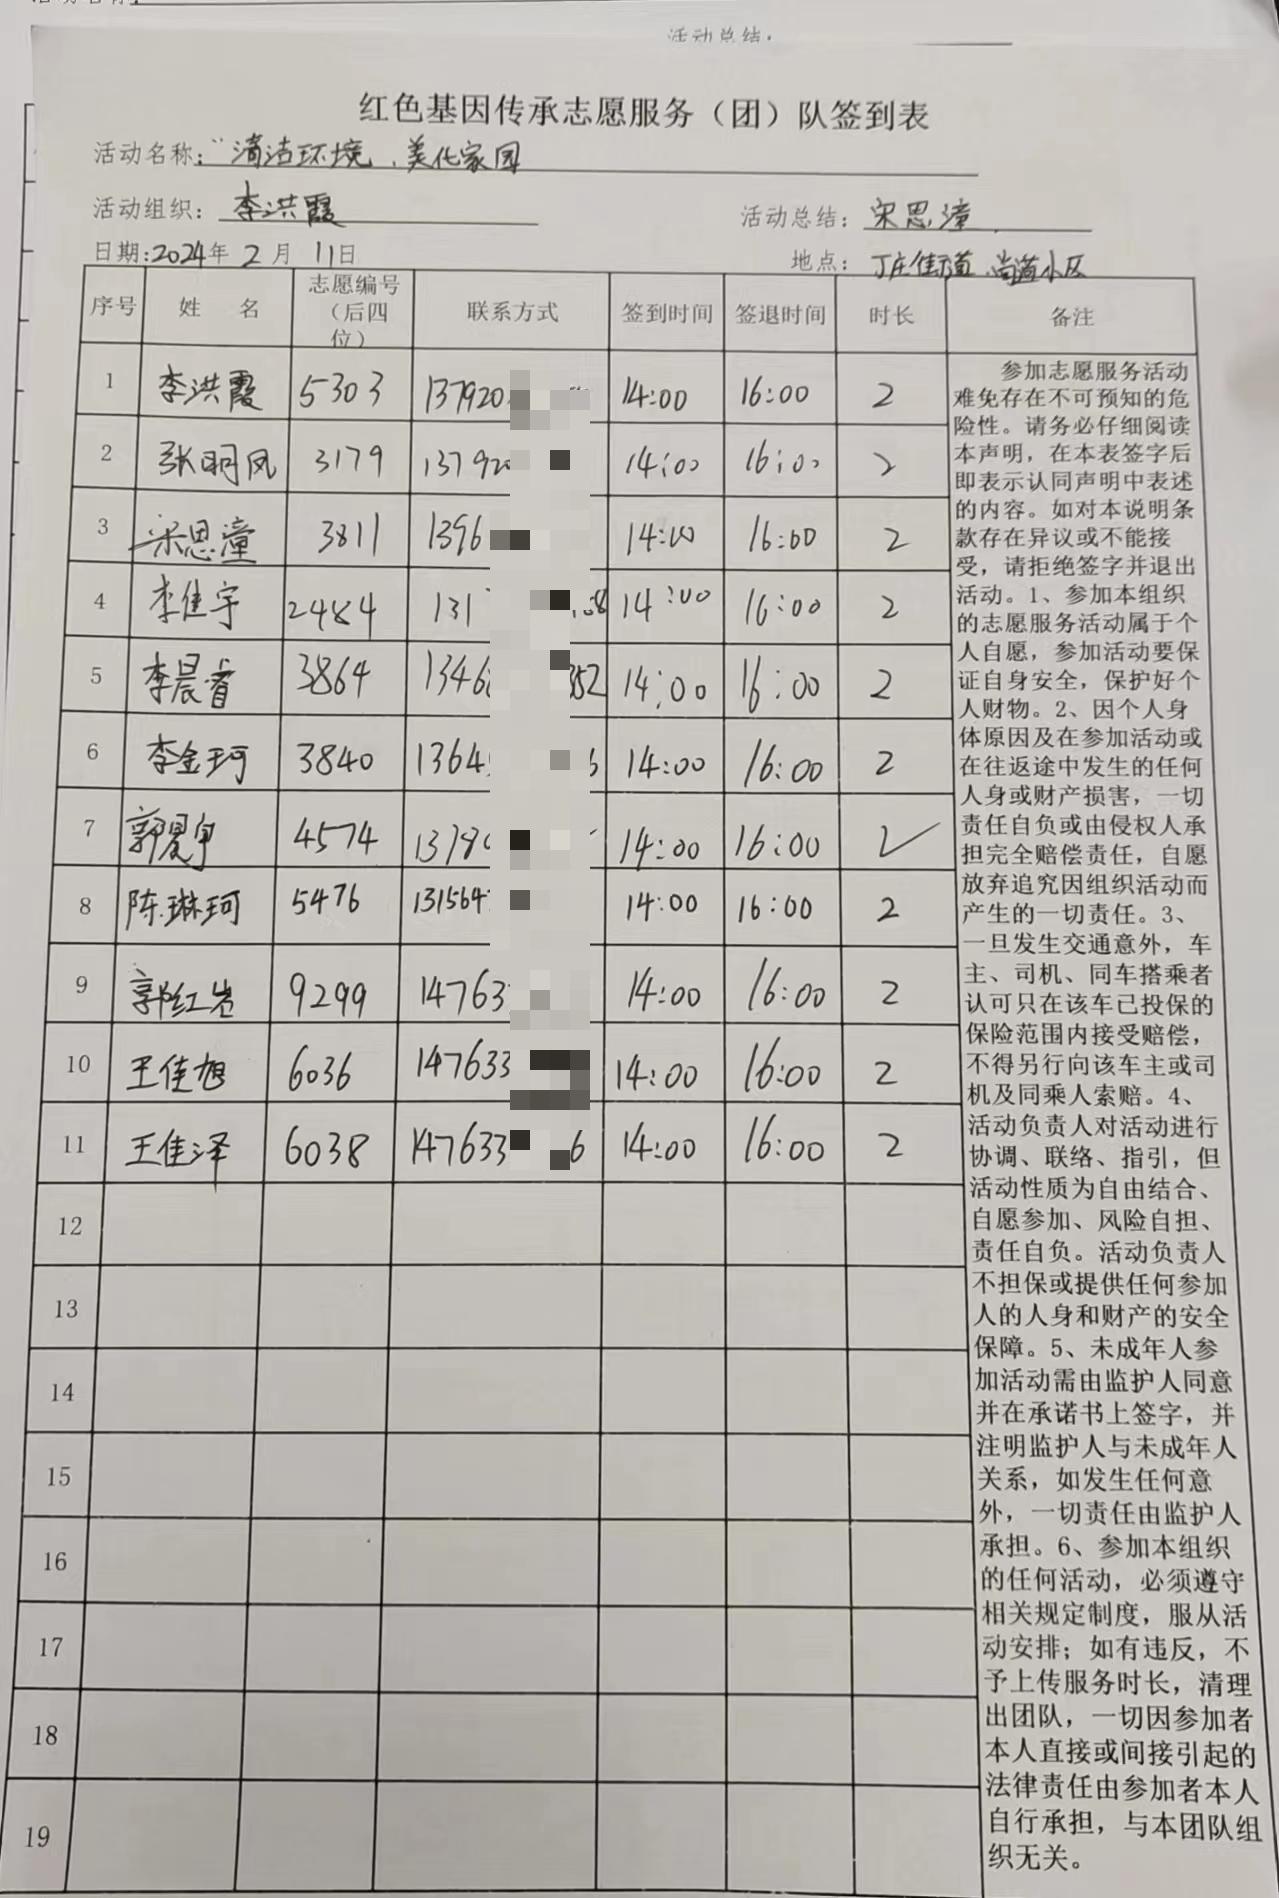 活动总结：
红色基因传承志愿服务（团）队签到表
活动名称："清洁环境、美化家园
活动组织：李洪霞
活动总结：宋思潼
日期:2024年 2 月 11日
地点：丁庄街道 尚道小区
序号 姓 名 志愿编号（后四位） 联系方式 签到时间 签退时间 时长 备注
1 李洪霞 5303 137920 14:00 16:00 2
2 张明凤 3179 13792 14:00 16:00 2
3 宋思潼 3811 1396 14:00 16:00 2
4 李佳宇 2484 131 14:00 16:00 2
5 李晨睿 3864 1346 352 14:00 16:00 2
6 李金珂 3840 1364 14:00 16:00 2
7 郭 4574 1378 14:00 16:00 2
8 陈琳珂 5476 131564 14:00 16:00 2
9 郭红岩 9299 14763 14:00 16:00 2
10 王佳旭 6036 147633 14:00 16:00 2
11 王佳泽 6038 147633 6 14:00 16:00 2
12
13
14
15
16
17
18
19
参加志愿服务活动
难免存在不可预知的危
险性。请务必仔细阅读
本声明，在本表签字后
即表示认同声明中表述
的内容。如对本说明条
款存在异议或不能接
受，请拒绝签字并退出
活动。1、参加本组织
的志愿服务活动属于个
人自愿，参加活动要保
证自身安全，保护好个
人财物。2、因个人身
体原因及在参加活动或
在往返途中发生的任何
人身或财产损害，一切
责任自负或由侵权人承
担完全赔偿责任，自愿
放弃追究因组织活动而
产生的一切责任。3、
一旦发生交通意外，车
主、司机、同车搭乘者
认可只在该车已投保的
保险范围内接受赔偿，
不得另行向该车主或司
机及同乘人索赔。4、
活动负责人对活动进行
协调、联络、指引，但
活动性质为自由结合、
自愿参加、风险自担、
责任自负。活动负责人
不担保或提供任何参加
人的人身和财产的安全
保障。5、未成年人参
加活动需由监护人同意
并在承诺书上签字，并
注明监护人与未成年人
关系，如发生任何意
外，一切责任由监护人
承担。6、参加本组织
的任何活动，必须遵守
相关规定制度，服从活
动安排；如有违反，不
予上传服务时长，清理
出团队，一切因参加者
本人直接或间接引起的
法律责任由参加者本人
自行承担，与本团队组
织无关。